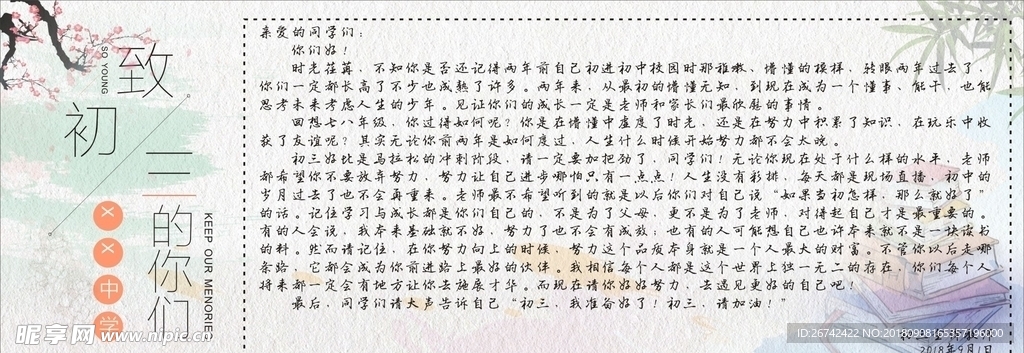 致
初
三
的你们
SO YOUNG
KEEP OUR MENORIE
××中学
亲爱的同学们：
你们好！
时光荏苒，不知你是否还记得两年前自己初进初中校园时那稚嫩、懵懂的模样，转眼两年过去了，
你们一定都长高了不少也成熟了许多。两年来，从最初的懵懂无知，到现在成为一个懂事、能干，也能
思考未来考虑人生的少年。见证你们的成长一定是老师和家长们最欣慰的事情。
回想七八年级，你过得如何呢？你是在懵懂中虚度了时光，还是在努力中积累了知识，在玩乐中收
获了友谊呢？其实无论你前两年是如何度过，人生什么时候开始努力都不会太晚。
初三好比是马拉松的冲刺阶段，请一定要加把劲了，同学们！无论你现在处于什么样的水平，老师
都希望你不要放弃努力，努力让自己进步哪怕只有一点点！人生没有彩排，每天都是现场直播，初中的
岁月过去了也不会再重来。老师最不希望听到的就是以后你们对自己说“如果当初怎样，那么就好了”
的话。记住学习与成长都是你们自己的，不是为了父母，更不是为了老师，对得起自己才是最重要的。
有的人会说，我本来基础就不好，努力了也不会有成效；也有的人可能想自己也许本来就不是一块读书
的料。然而请记住，在你努力向上的时候，努力这个品质本身就是一个人最大的财富。不管你以后走哪
条路，它都会成为你前进路上最好的伙伴。我相信每个人都是这个世界上独一无二的存在，你们每个人
将来都一定会有地方让你去施展才华。而现在请你好好努力，去遇见更好的自己吧！
最后，同学们请大声告诉自己“初三，我准备好了！初三，请加油！”
2018年9月1日
昵享网 www.nipic.cn
ID:26742422 NO:20180908165357196000